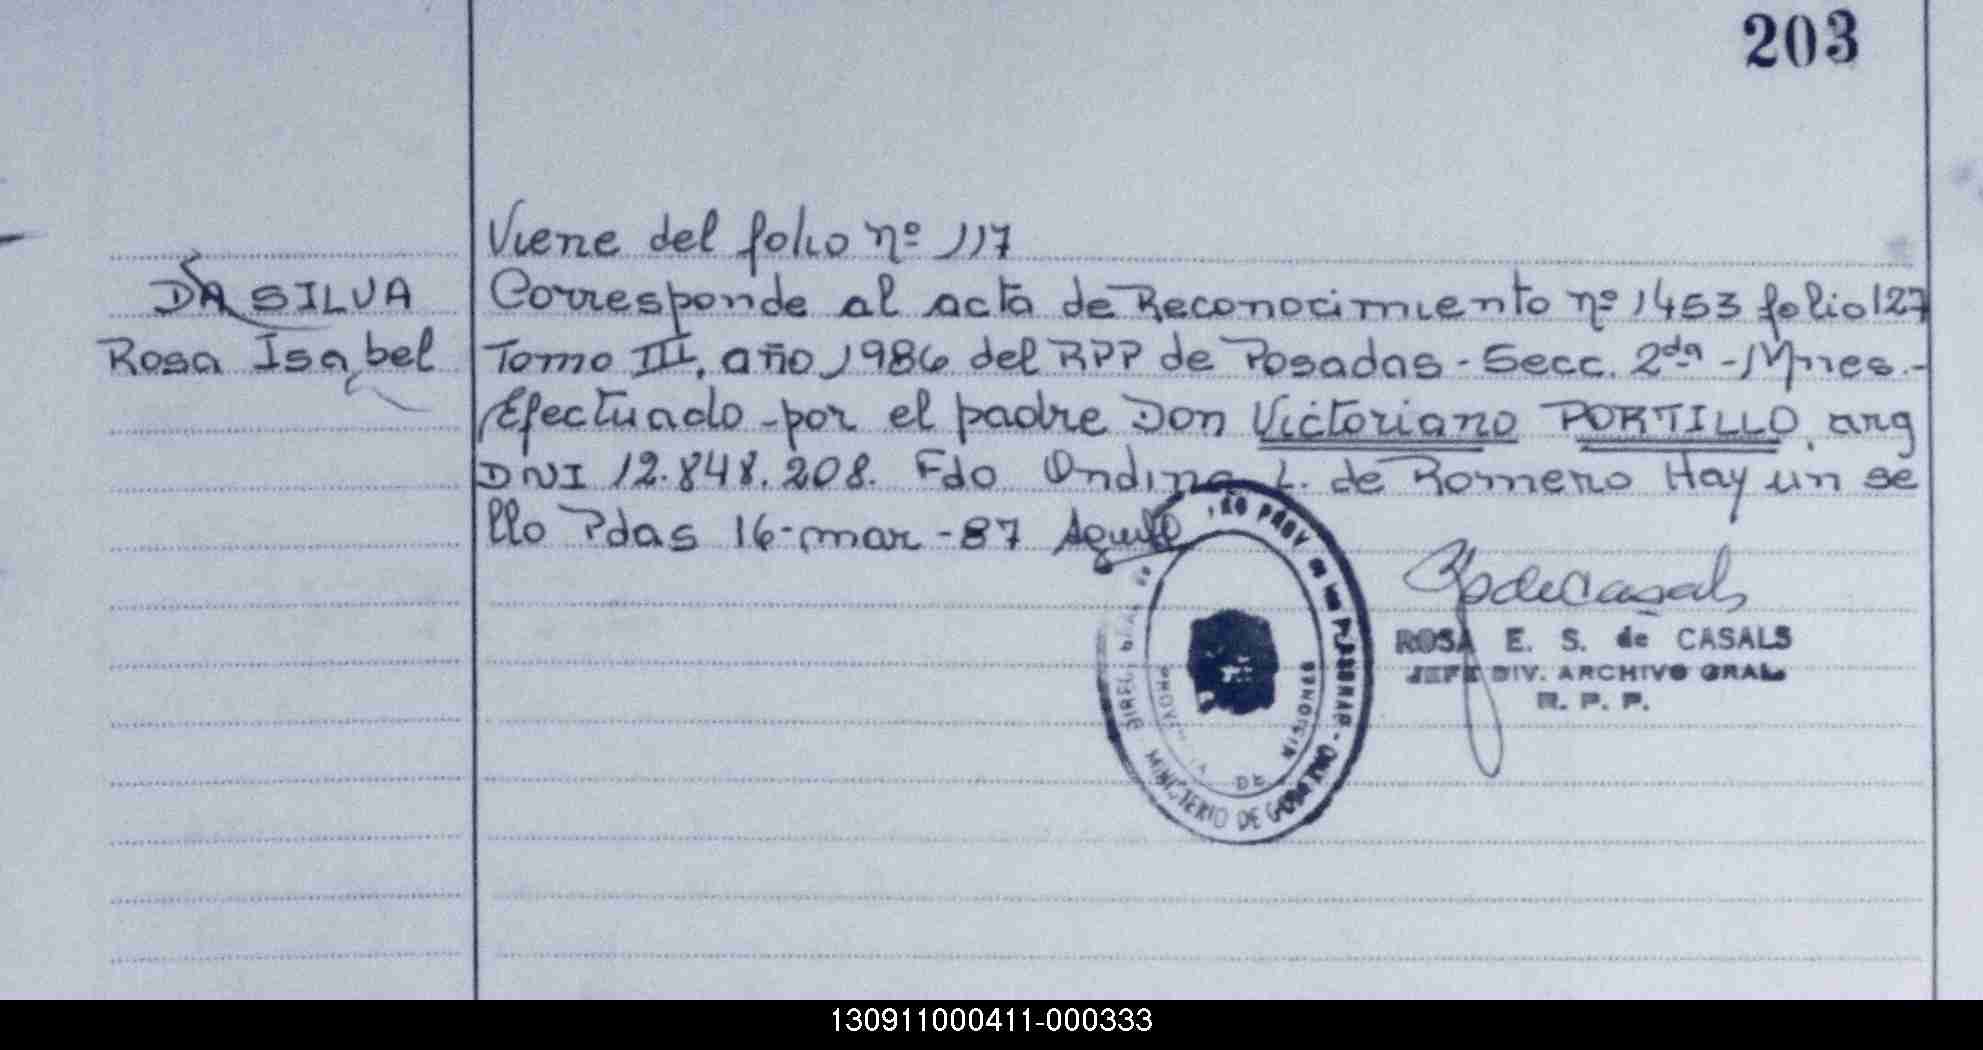 203
Viene del folio nº 117
DA SILVA
Rosa Isabel
Corresponde al acta de Reconocimiento nº 1453 folio 127
Tomo III, año 1986 del RPP de Posadas - Secc. 2da - Mnes.-
Efectuado por el padre Don Victoriano PORTILLO, arg
DNI 12.848.208. Fdo Ondina L. de Romero Hay un se
llo Pdas 16-mar-87
ROSA E. S. de CASALS
JEFE DIV. ARCHIVO GRAL
R. P. P.
MINISTERIO DE GOBIERNO
130911000411-000333